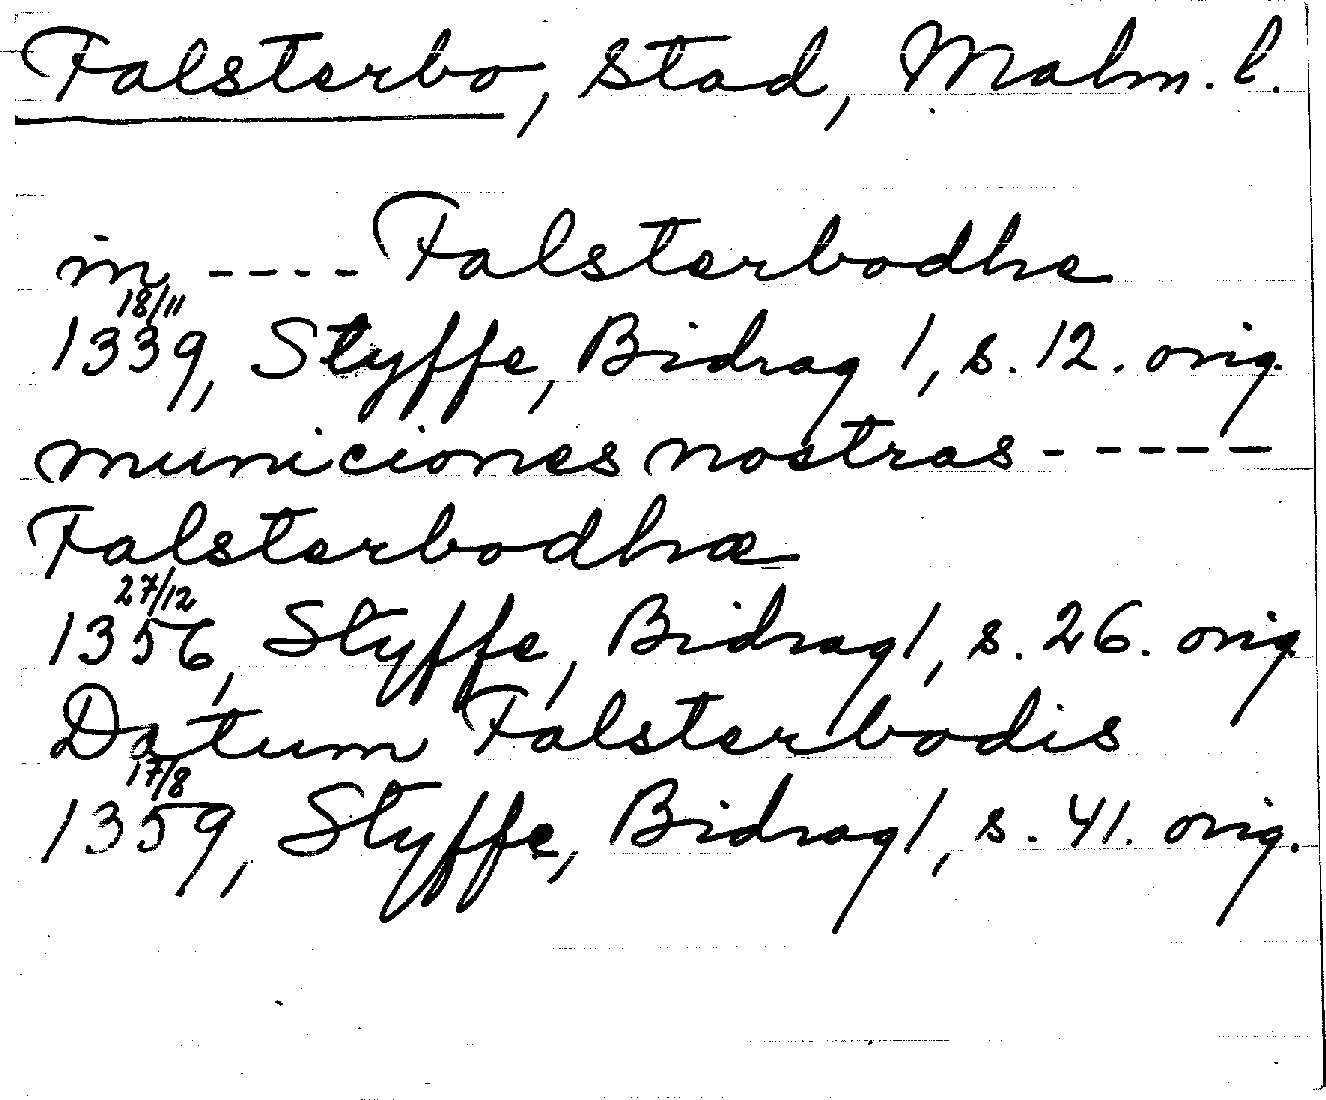 Falsterbo, stad, Malm. l.
in ---- Falsterbodhe
18/11
1339, Styffe, Bidrag 1, s. 12. orig.
municiones nostras -----
Falsterbodhæ
27/12
1356, Styffe, Bidrag 1, s. 26. orig
Datum Falsterbodis
17/8
1359, Styffe, Bidrag 1, s. 41. orig.